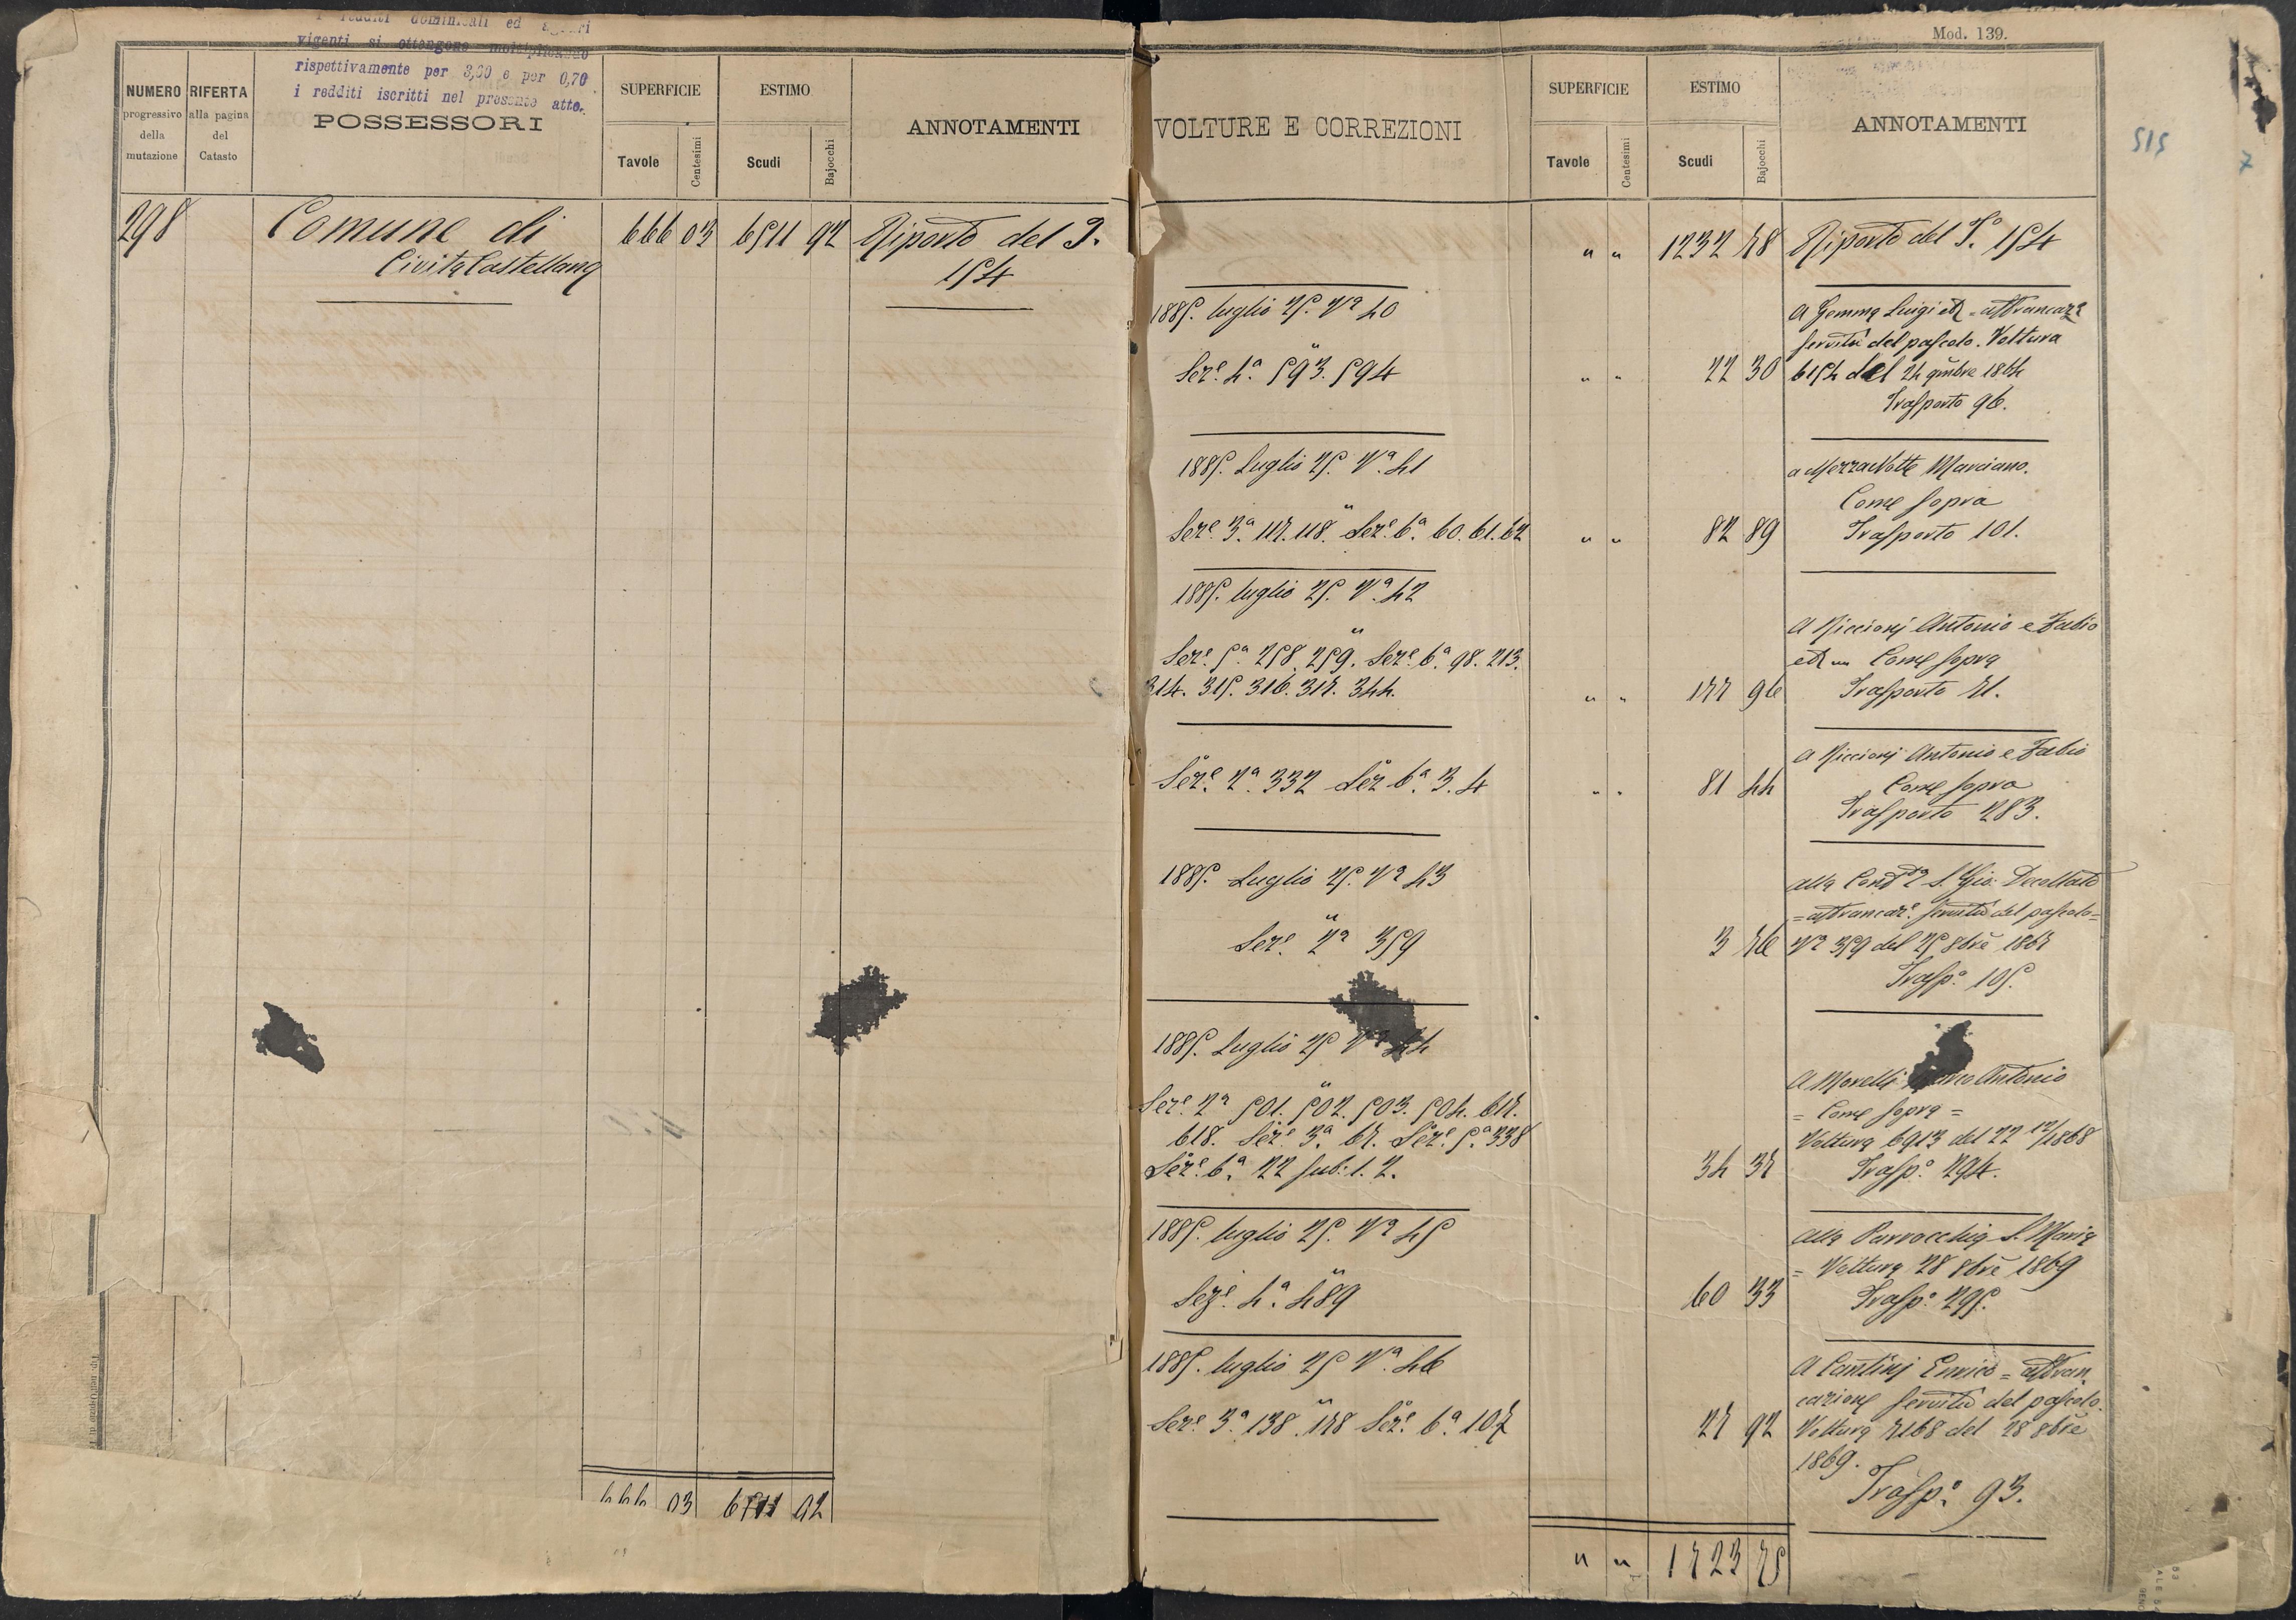 Mod. 139.
I redditi dominicali ed agrari
vigenti si ottengono moltiplicando
rispettivamente per 3,60 e per 0,70
i redditi iscritti nel presente atto.
NUMERO
progressivo
della
mutazione
RIFERTA
alla pagina
del
Catasto
POSSESSORI
SUPERFICIE
Tavole
Centesimi
ESTIMO
Scudi
Bajocchi
ANNOTAMENTI
298
Comune di
Civita Castellana
666 03 6511 92
Riporto del P.
154
666 03 6511 92
VOLTURE E CORREZIONI
SUPERFICIE
Tavole
Centesimi
ESTIMO
Scudi
Bajocchi
ANNOTAMENTI
515
7
" " 1232 78 Riporto del P.º 154
1885. luglio 25. Vª 40
Seze. 4ª. 593. 594
" " 22 30
A Gemma Luigi = affrancaze
servitù del pascolo. Voltura
6154 del 24 9mbre 1864
Trasporto 96.
1885. Luglio 25. Vª. 41
Seze. 3ª. 117. 118. Seze. 6ª. 60. 61. 62
" " 82 89
a MezzaNotte Marciano.
Come sopra
Trasporto 101.
1885. luglio 25. Vª. 42
Seze. 5ª. 258. 259. Seze. 6ª. 98. 213.
314. 315. 316. 317. 344.
" " 177 96
A Piccioni Antonio e Fabio
Come sopra
Trasporto 71.
Seze. 2ª. 332 Sez 6ª. 3. 4
" " 81 44
A Piccioni Antonio e Fabio
Come sopra
Trasporto 283.
1885. Luglio 25. Vª 43
Seze. 2ª 359
3 76
alla S. Gio: Decollato
= affrancaze. servitù del pascolo =
Vª 359 del 25 8bre 1867
Trasp.º 105.
1885. Luglio 25 Vª 44
Seze. 2ª 501. 502. 503. 504. 617.
618. Seze. 3ª. 67. Seze. 5ª. 338
Seze. 6ª. 22 sub: 1. 2.
34 37
A Morelli Antonio
= Come sopra =
Voltura 6913 del 22 12/1868
Trasp.º 294.
1885. luglio 25. Vª 45
Seze. 4ª. 489
60 33
alla Parrocchia S. Maria
= Voltura 28 8bre 1869
Trasp.º 295.
1885. luglio 25 Vª. 46
Seze. 3ª. 138. 178 Seze. 6ª. 107
27 92
A Cantini Enrico = affran
cazione servitù del pascolo.
Voltura 7168 del 28 8bre
1869.
Trasp.º 93.
" " 1723 75